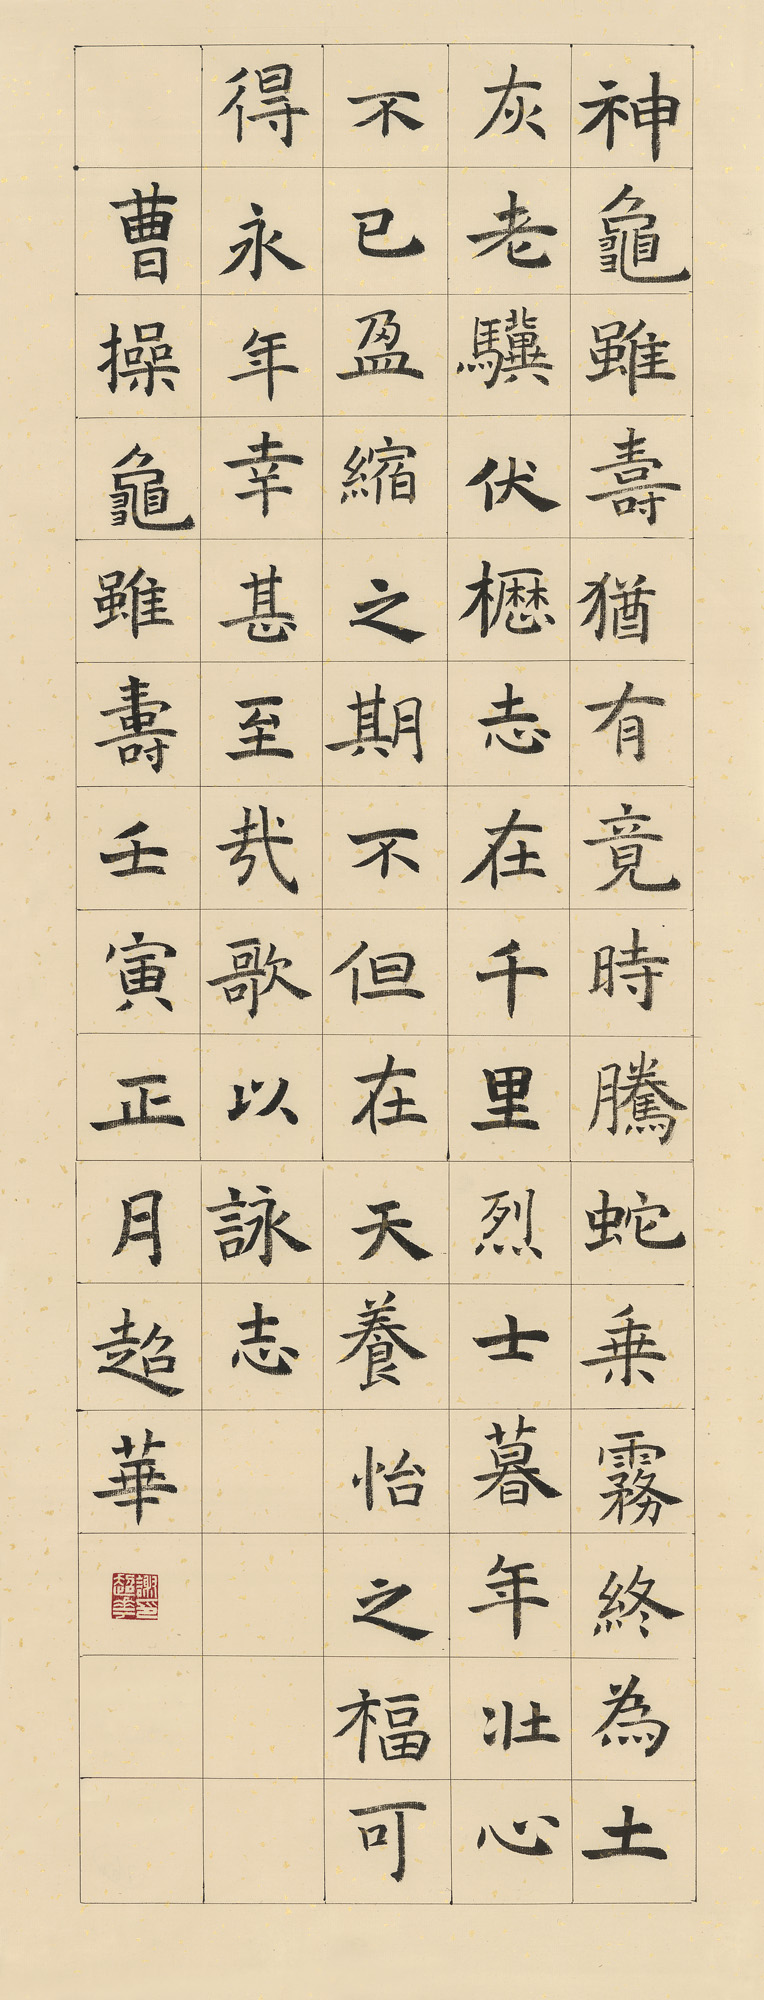 神龜雖壽猶有竟時騰蛇乗霧終為土
灰老驥伏櫪志在千里烈士暮年壮心
不已盈縮之期不但在天養怡之福可
得永年幸甚至哉歌以詠志
曹操龜雖壽壬寅正月超華
謝印超華